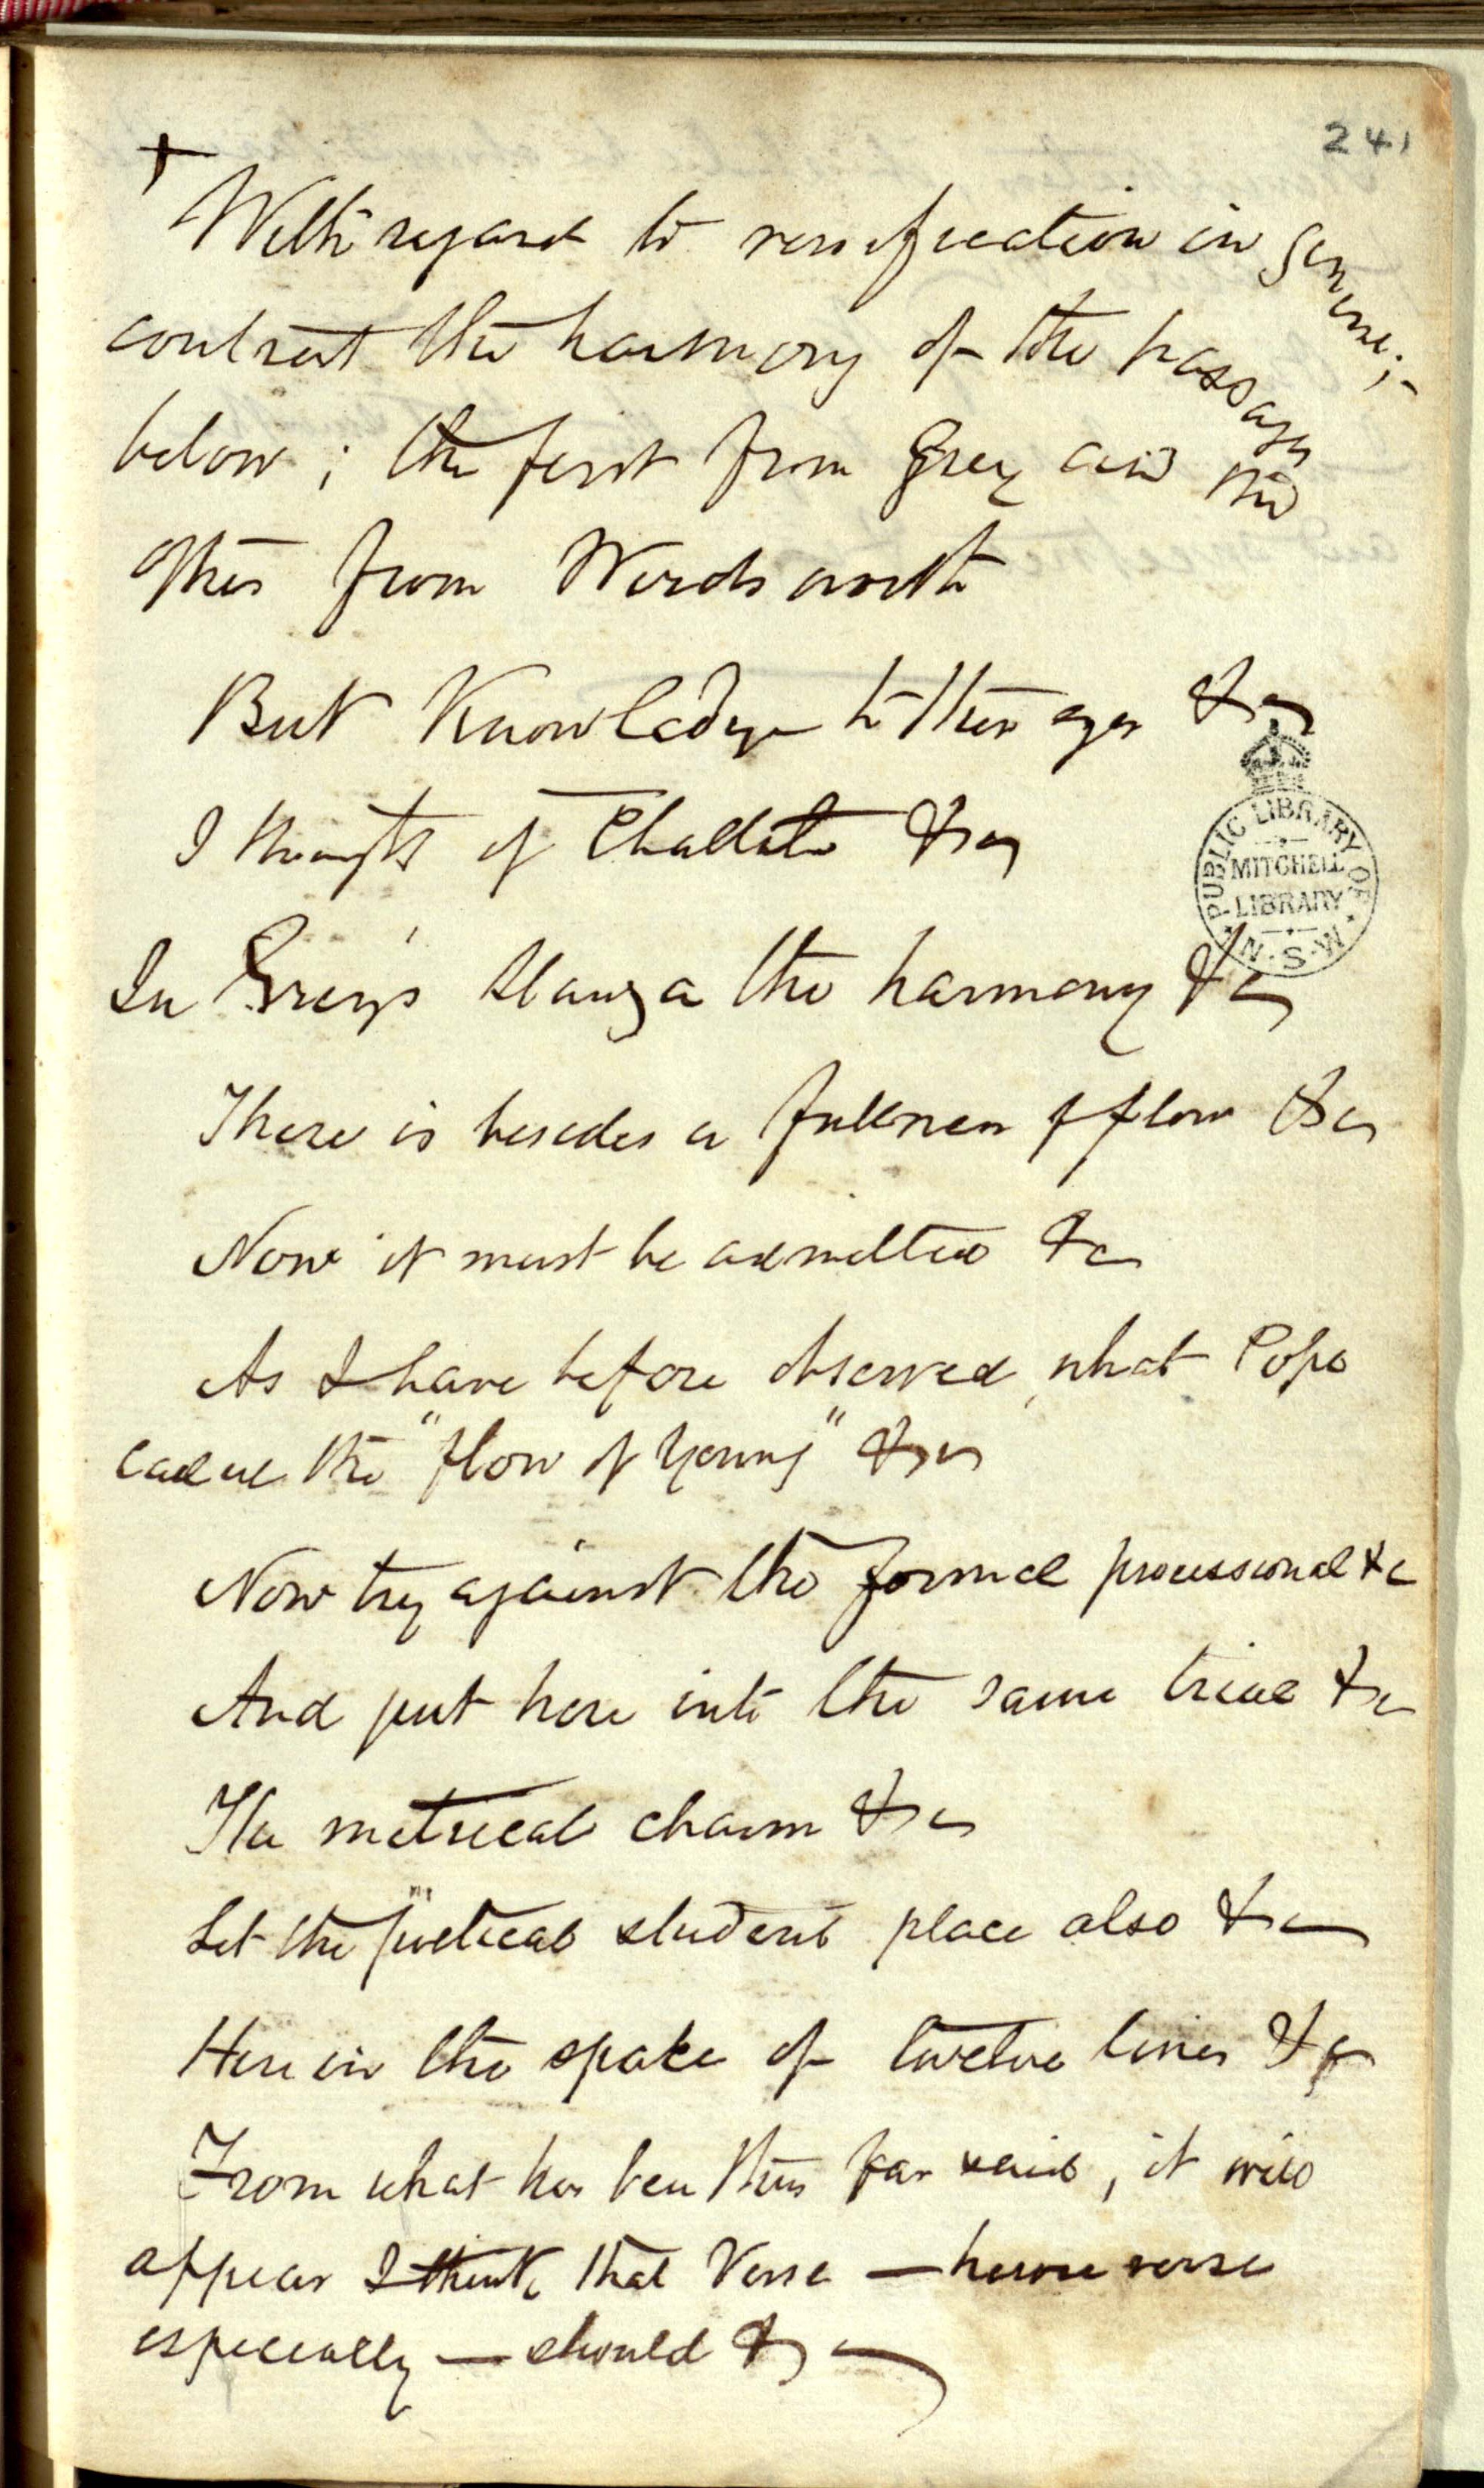 241
+
With regard to versification in general;
contrast the harmony of the passages
below; the first from Grey and the
other from Wordsworth
But Knowledge to their eyes &c
I thought of Chatterton &c
In Grey's stanza the harmony &c
There is besides a fullness of flow &c
Now it must be admitted &c
As I have before observed, what Pope
called the "flow of Young" &c
Now try against the formal processional &c
And put here into the same trial &c
The metrical charm &c
Let the poetical student place also &c
Here in the space of twelve lines &c
From what has been thus far said, it will
appear I think, that Verse — heroic verse
especially — should &c
PUBLIC LIBRARY OF N.S.W.
MITCHELL
LIBRARY